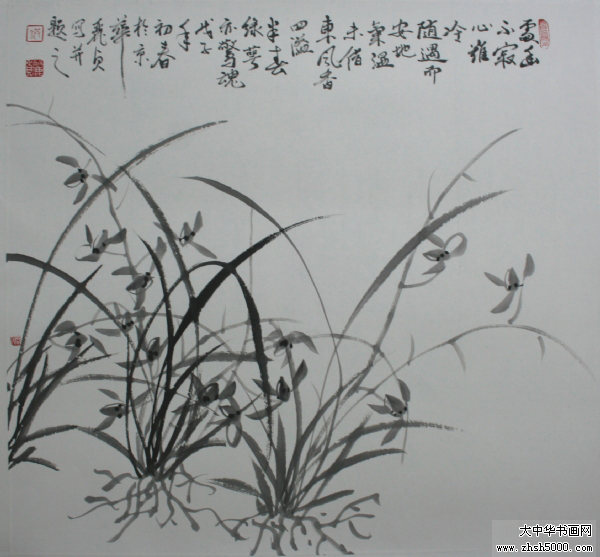 處幽
不寂
心難
冷
随遇而
安地
氣温
未借
東风香
四溢
半
绿萼
亦驚魂
戊子
年
初春
於京
華
貞
写并
题之
大中华书画网
www.zhsh5000.com